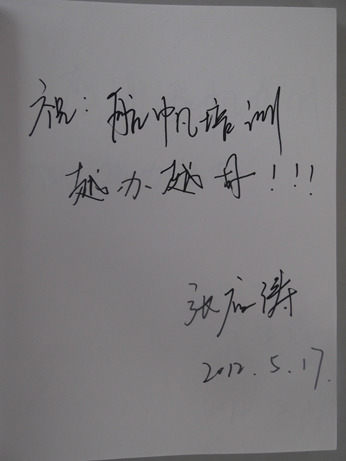 祝：航帆培训
越办越好！！！
张应涛
2012.5.17.